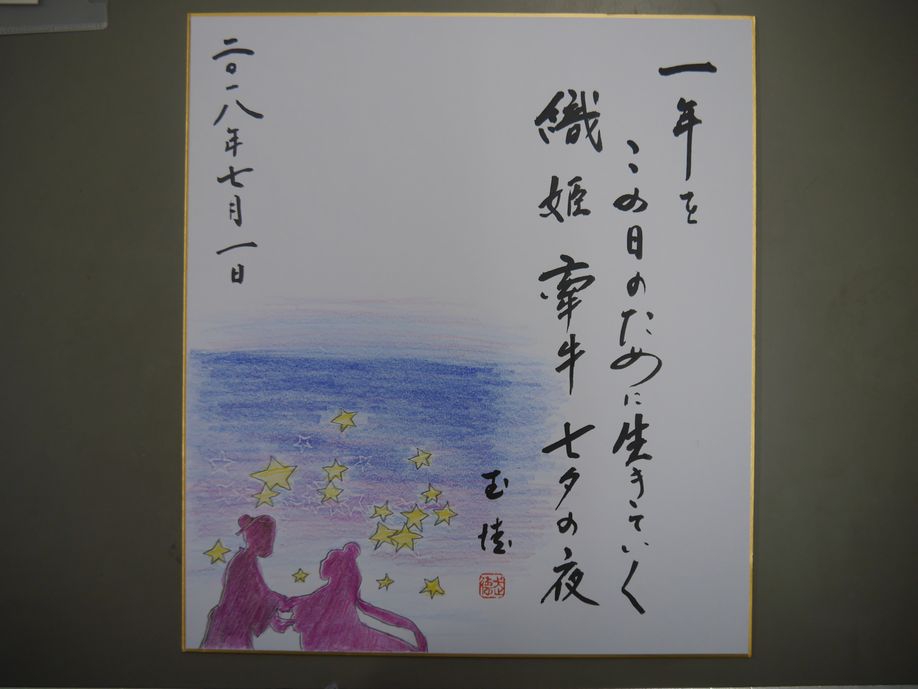 一年を
この日のために生きていく
織姫 牽牛 七夕の夜
二〇一八年七月一日